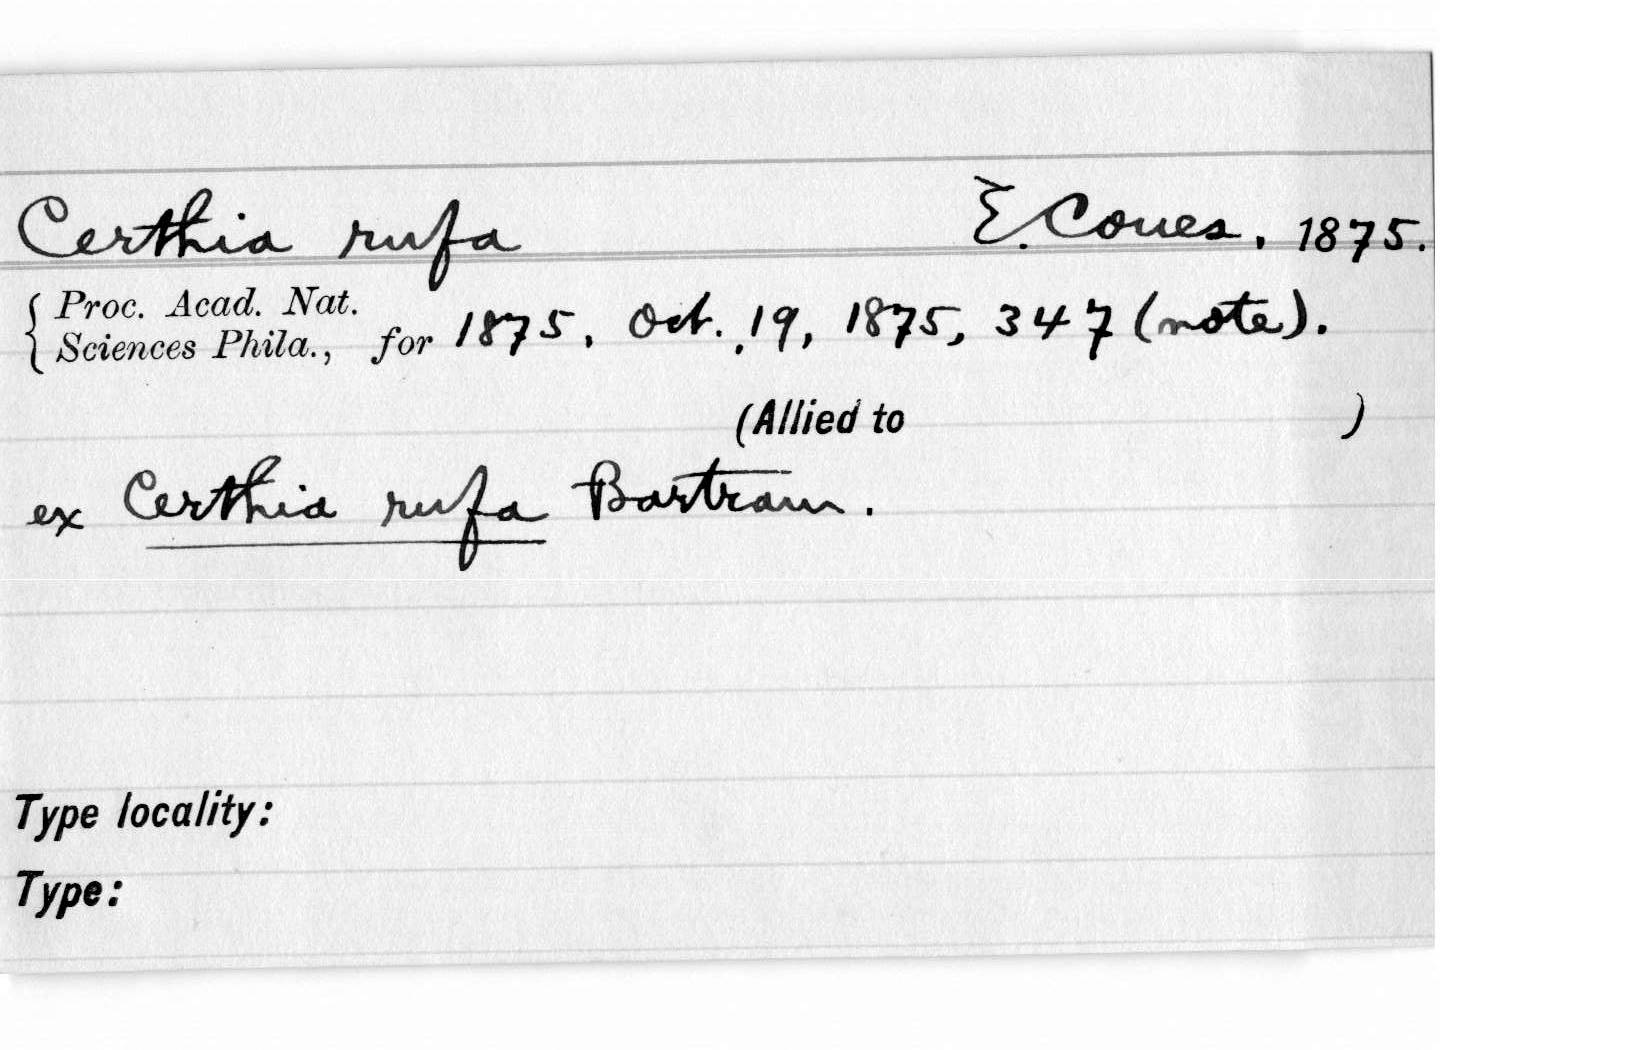 Certhia rufa E. Coues, 1875.
{ Proc. Acad. Nat.
Sciences Phila., for 1875, Oct. 19, 1875, 347 (note).
(Allied to )
ex Certhia rufa Bartram.
Type locality:
Type: